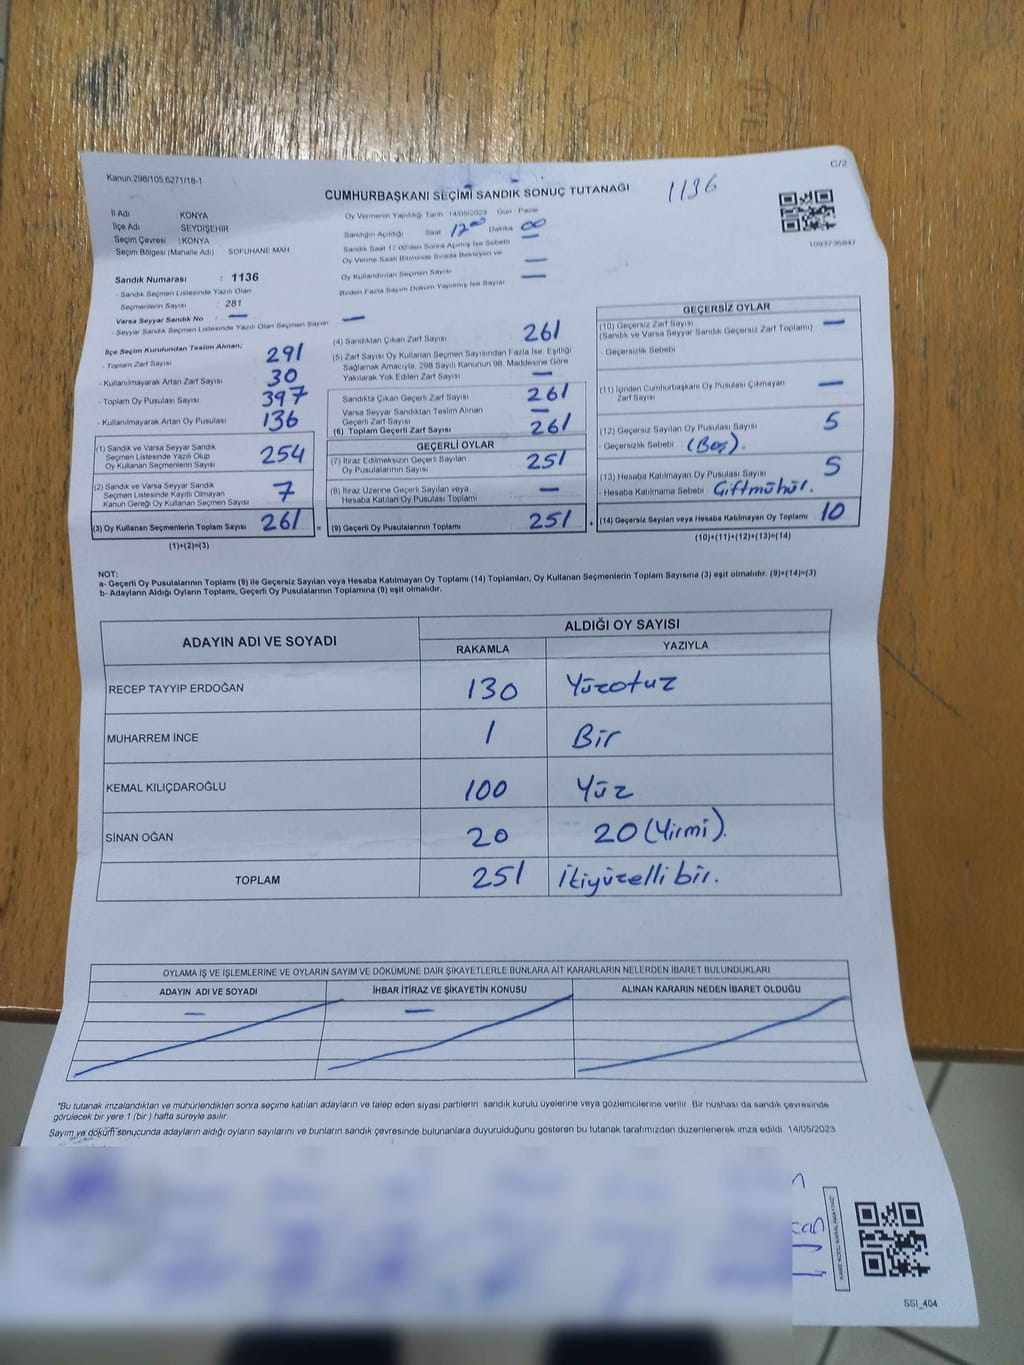 Kanun.298/105,6271/18-1
C/2
CUMHURBAŞKANI SEÇİMİ SANDIK SONUÇ TUTANAĞI
1136
İl Adı KONYA
İlçe Adı SEYDİŞEHİR
Seçim Çevresi : KONYA
Seçim Bölgesi (Mahalle Adı) SOFUHANE MAH
Sandık Numarası : 1136
- Sandık Seçmen Listesinde Yazılı Olan
Seçmenlerin Sayısı : 281
Varsa Seyyar Sandık No —
- Seyyar Sandık Seçmen Listesinde Yazılı Olan Seçmen Sayısı —
Oy Vermenin Yapıldığı Tarih 14/05/2023 Gün Pazar
Sandığın Açıldığı Saat 17 00 Dakika 00
Sandık Saat 17:00'den Sonra Açılmış İse Sebebi —
Oy Verme Saati Bitiminde Sırada Bekleyen ve
Oy Kullandırılan Seçmen Sayısı —
Birden Fazla Sayım Döküm Yapılmış İse Sayısı —
1093736847
İlçe Seçim Kurulundan Teslim Alınan;
- Toplam Zarf Sayısı 291
- Kullanılmayarak Artan Zarf Sayısı 30
- Toplam Oy Pusulası Sayısı 397
- Kullanılmayarak Artan Oy Pusulası 136
(1) Sandık ve Varsa Seyyar Sandık
Seçmen Listesinde Yazılı Olup
Oy Kullanan Seçmenlerin Sayısı 254
(2) Sandık ve Varsa Seyyar Sandık
Seçmen Listesinde Kayıtlı Olmayan
Kanun Gereği Oy Kullanan Seçmen Sayısı 7
(3) Oy Kullanan Seçmenlerin Toplam Sayısı 261 =
(1)+(2)=(3)
(4) Sandıktan Çıkan Zarf Sayısı 261
(5) Zarf Sayısı Oy Kullanan Seçmen Sayısından Fazla İse, Eşitliği
Sağlamak Amacıyla, 298 Sayılı Kanunun 98. Maddesine Göre
Yakılarak Yok Edilen Zarf Sayısı —
Sandıkta Çıkan Geçerli Zarf Sayısı 261
Varsa Seyyar Sandıktan Teslim Alınan
Geçerli Zarf Sayısı —
(6) Toplam Geçerli Zarf Sayısı 261
GEÇERLİ OYLAR
(7) İtiraz Edilmeksizin Geçerli Sayılan
Oy Pusulalarının Sayısı 251
(8) İtiraz Üzerine Geçerli Sayılan veya
Hesaba Katılan Oy Pusulası Toplamı —
(9) Geçerli Oy Pusulalarının Toplamı 251 +
GEÇERSİZ OYLAR
(10) Geçersiz Zarf Sayısı
(Sandık ve Varsa Seyyar Sandık Geçersiz Zarf Toplamı) —
- Geçersizlik Sebebi
(11) İçinden Cumhurbaşkanı Oy Pusulası Çıkmayan
Zarf Sayısı —
(12) Geçersiz Sayılan Oy Pusulası Sayısı 5
- Geçersizlik Sebebi (Boş).
(13) Hesaba Katılmayan Oy Pusulası Sayısı 5
- Hesaba Katılmama Sebebi Çiftmühür.
(14) Geçersiz Sayılan veya Hesaba Katılmayan Oy Toplamı 10
(10)+(11)+(12)+(13)=(14)
NOT:
a- Geçerli Oy Pusulalarının Toplamı (9) ile Geçersiz Sayılan veya Hesaba Katılmayan Oy Toplamı (14) Toplamları, Oy Kullanan Seçmenlerin Toplam Sayısına (3) eşit olmalıdır. (9)+(14)=(3)
b- Adayların Aldığı Oyların Toplamı, Geçerli Oy Pusulalarının Toplamına (9) eşit olmalıdır.
ADAYIN ADI VE SOYADI
ALDIĞI OY SAYISI
RAKAMLA YAZIYLA
RECEP TAYYIP ERDOĞAN 130 Yüzotuz
MUHARREM İNCE 1 Bir
KEMAL KILIÇDAROĞLU 100 Yüz
SİNAN OĞAN 20 20 (Yirmi).
TOPLAM 251 İkiyüzelli bir.
OYLAMA İŞ VE İŞLEMLERİNE VE OYLARIN SAYIM VE DÖKÜMÜNE DAİR ŞİKAYETLERLE BUNLARA AİT KARARLARIN NELERDEN İBARET BULUNDUKLARI
ADAYIN ADI VE SOYADI İHBAR İTİRAZ VE ŞİKAYETİN KONUSU ALINAN KARARIN NEDEN İBARET OLDUĞU
— —
*Bu tutanak imzalandıktan ve mühürlendikten sonra seçime katılan adayların ve talep eden siyasi partilerin sandık kurulu üyelerine veya gözlemcilerine verilir. Bir nüshası da sandık çevresinde
görülecek bir yere 1 (bir) hafta süreyle asılır.
Sayım ve döküm sonucunda adayların aldığı oyların sayılarını ve bunların sandık çevresinde bulunanlara duyurulduğunu gösteren bu tutanak tarafımızdan düzenlenerek imza edildi. 14/05/2023
can
KARE KODU KARALAMAYINIZ
SSI_404